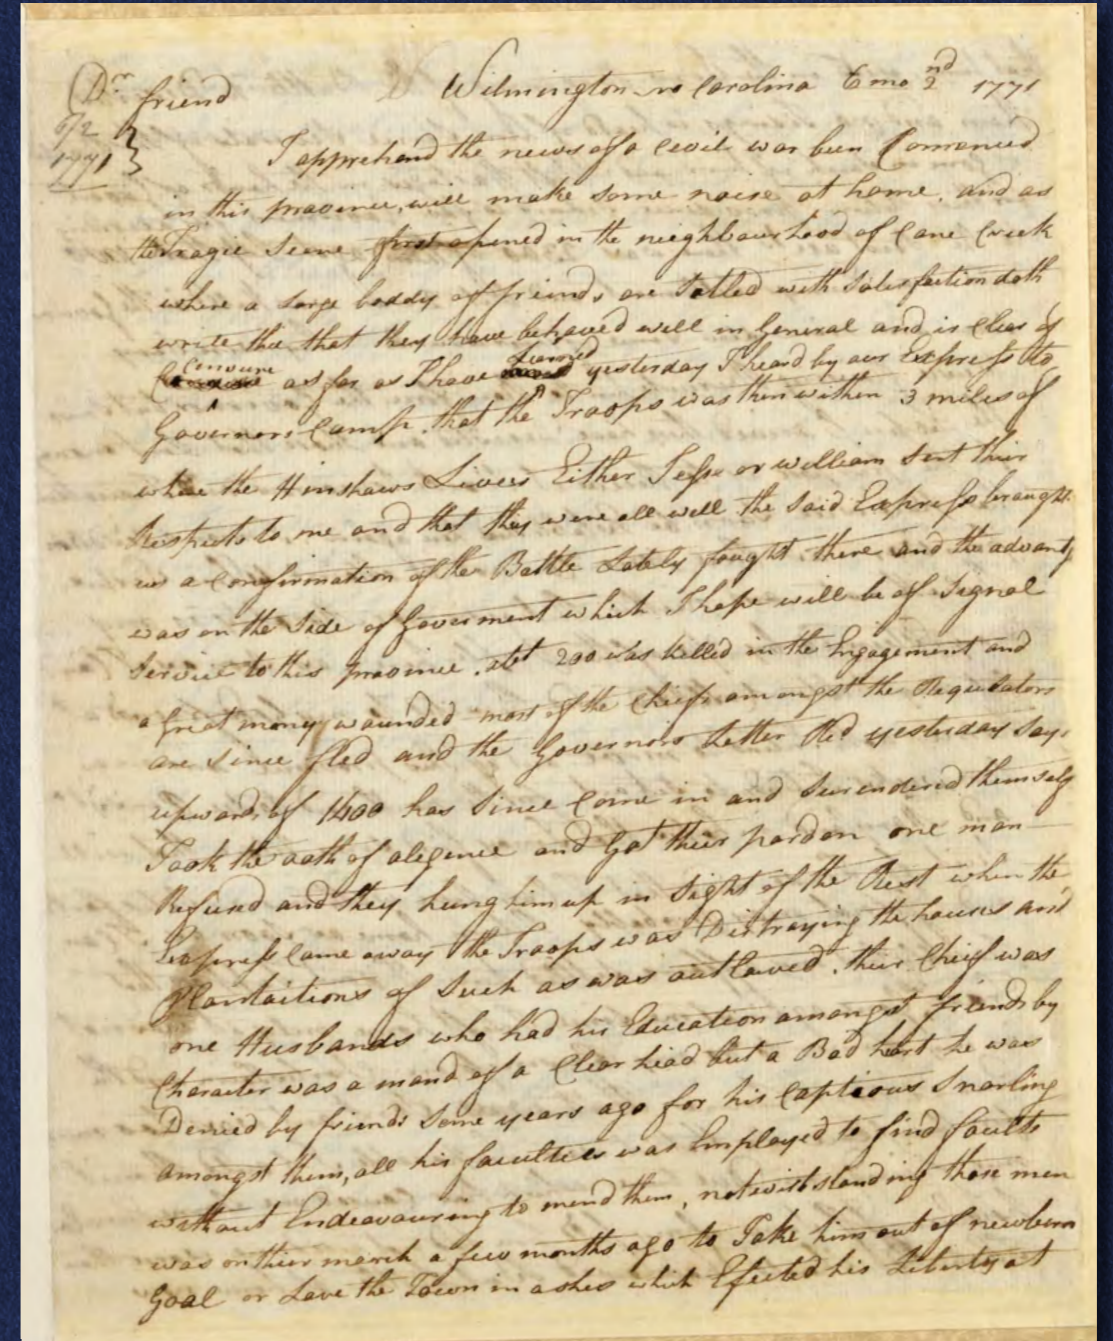 Wilmington no Carolina 6 mo 2nd 1771
Dr friend
6/2
1771
I apprehend the news of a Cevil war been Comenced
in this province, will make some noise at home, and as
the Tragic Scene first opened in the neighbourhood of Cane Creek
where a large boddy of friends are Satled with Satisfaction doth
write thee that they have behaved well in General and is Clear of
Censure as far as I have Learned yesterday I heard by our Express to
Governors Camp, that the Troops was then within 3 miles of
where the Hinshaws Lives Either Jesse or william sent their
Respects to me and that they were all well the said Express brought
us a Confirmation of the Battle Lately fought there and the advantg
was on the Side of Goverment which I hope will be of Signal
Service to this province, abt 200 was killed in the Engagement and
a Great many wounded most of the Chiefs amongst the Regulators
are Since fled and the Governors Letter Red yesterday says
upwards of 1400 has Since Come in and Surendered themselfs
Took the oath of alegence and Got their pardon one man
Refused and they hung him up in Sight of the Rest when the
Express Came away the Troops was Distraying the houses and
Plantaitions of Such as was outlawed, their Chief was
one Husbands who had his Education amongst friends by
Character was a mand of a Clear head but a Bad hart he was
Denied by friends Some years ago for his Captious Snarling
amongst them, all his faculties was Employed to find faults
without Endeavouring to mend them, notwithstanding those men
was on their march a few months ago to Take him out of newbern
Goal or Lave the Town in ashes which Efected his Liberty at